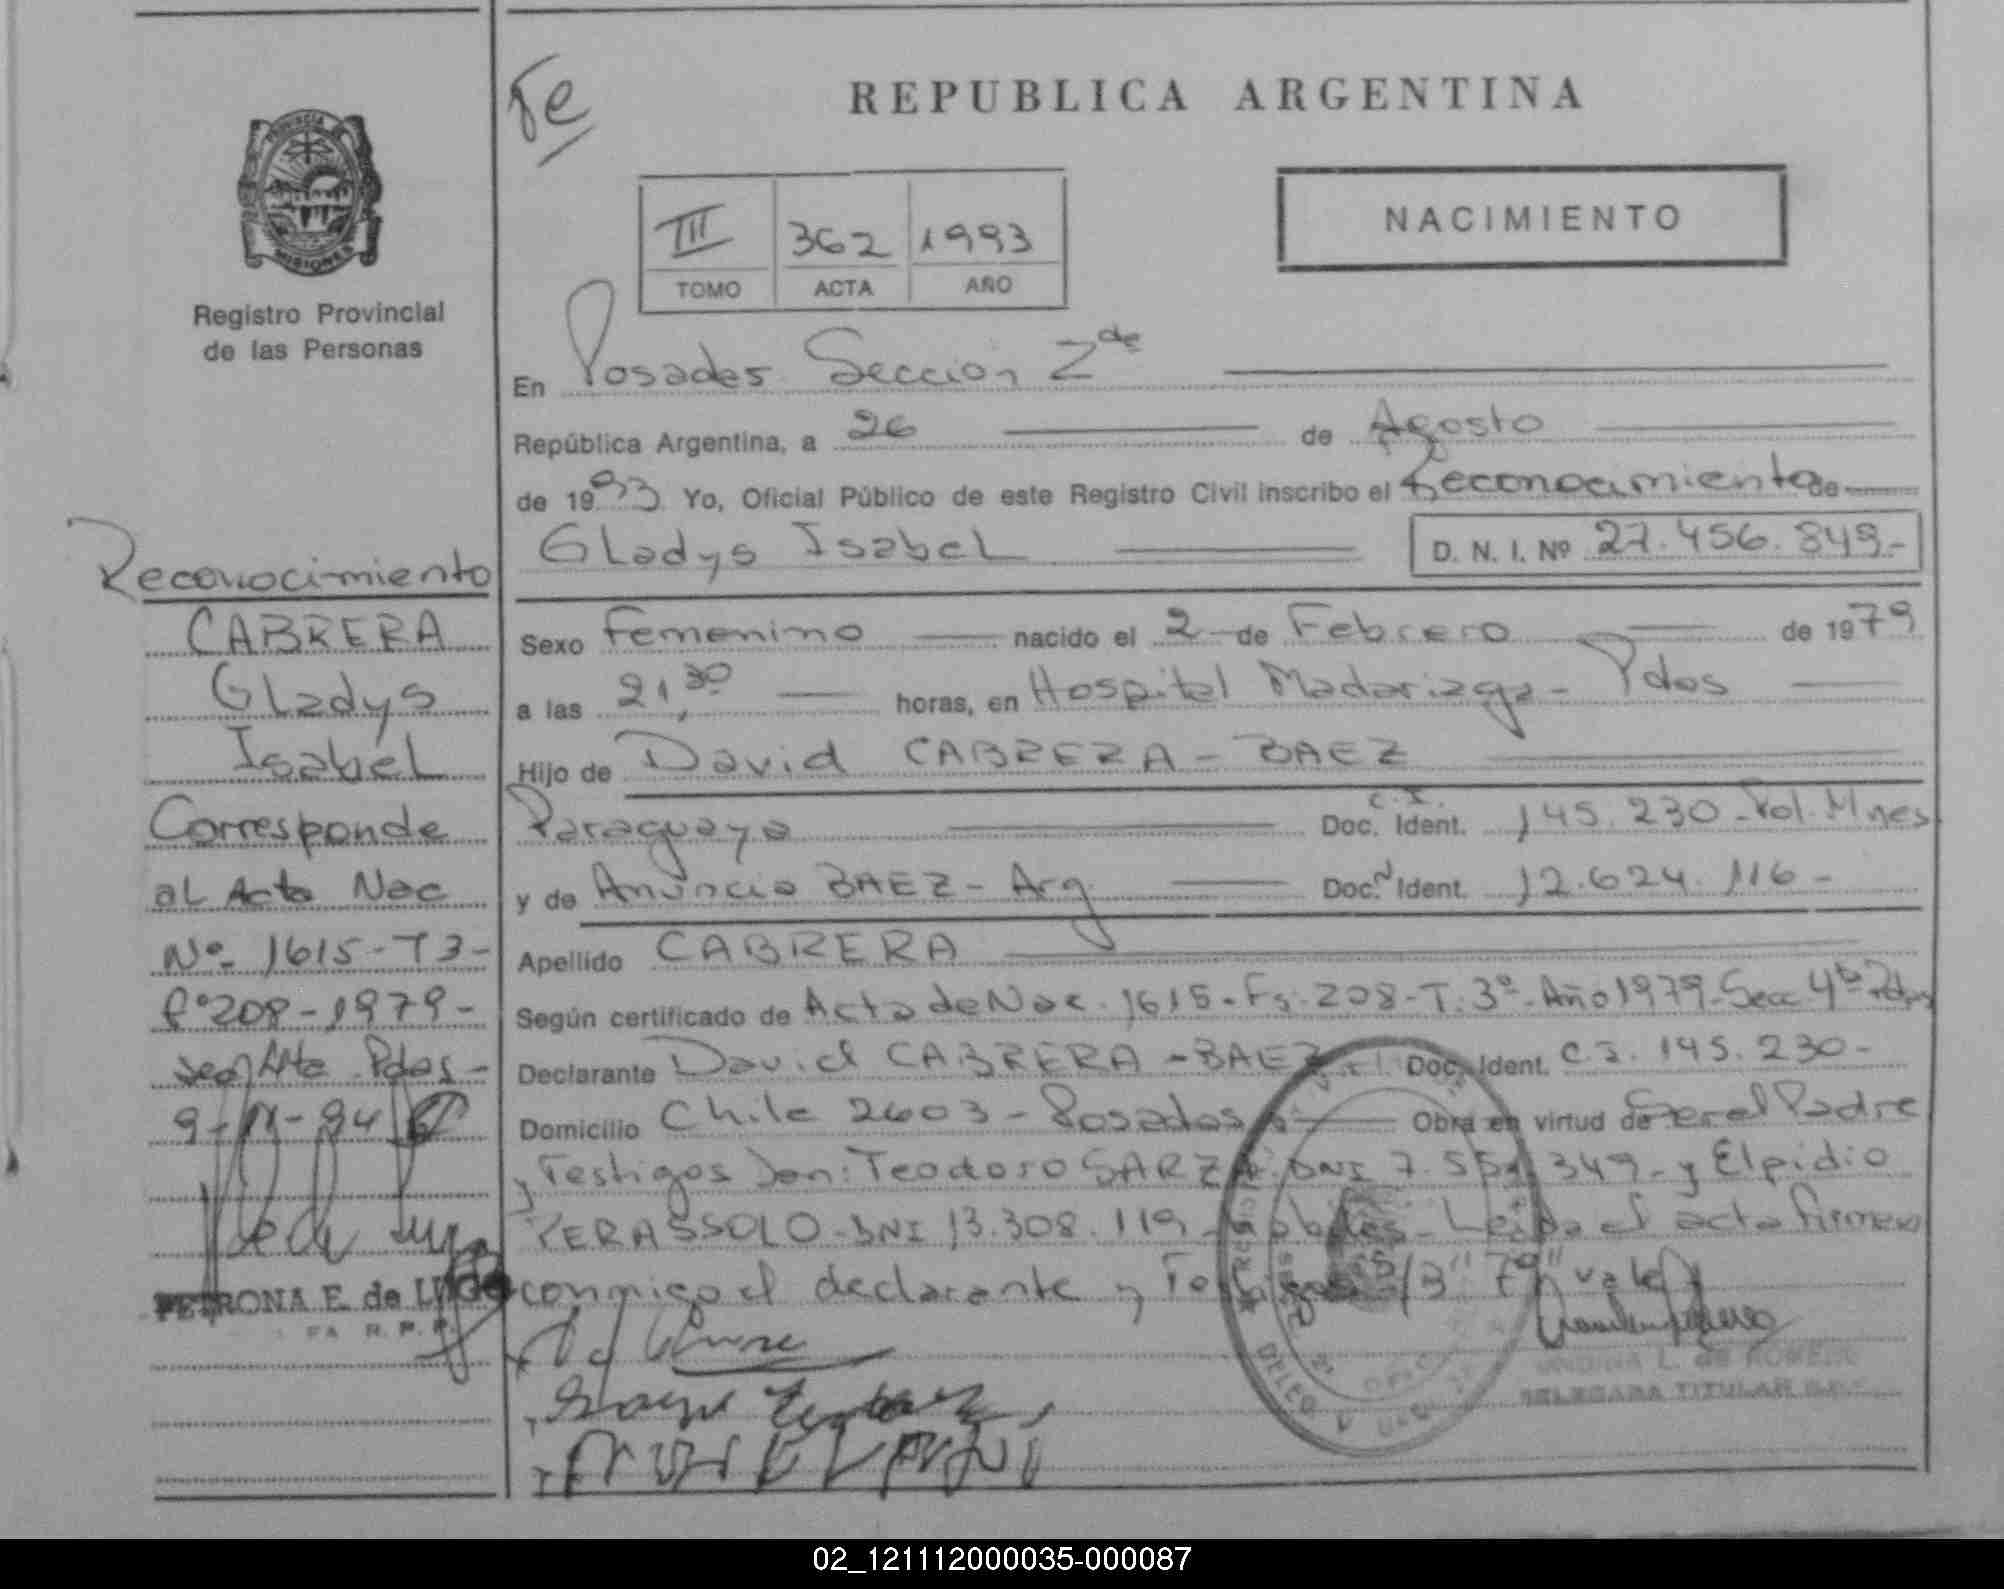 Te
REPUBLICA ARGENTINA
PROVINCIA DE
MISIONES
III 362 1993
TOMO ACTA AÑO
NACIMIENTO
Registro Provincial
de las Personas
En Posadas Sección 2da
República Argentina, a 26 de Agosto
de 1993 Yo, Oficial Público de este Registro Civil inscribo el Reconocimiento de
Gladys Isabel D. N. I. Nº 27.456.849.-
Sexo Femenino nacido el 2 de Febrero de 1979
a las 21,30 horas, en Hospital Madariaga - Pdas
Hijo de David CABRERA - BAEZ
Paraguaya C.I. Doc. Ident. 145.230 - Pol. Mnes
y de Anuncia BAEZ - Arg. Doc. Ident. 12.624.116 -
Apellido CABRERA
Según certificado de Acta de Nac. 1615 - Fs. 208 - T. 3º - Año 1979 - Secc. 4ta Pdas
Declarante David CABRERA - BAEZ Doc. Ident. C.I. 145.230 -
Domicilio Chile 2603 - Posadas Obra en virtud de Ser el Padre
y Testigos Don: Teodoro DNI 7.551.349 - y Elpidio
PERASSOLO - DNI 13.308.119 - Leída el acta firman
conmigo el declarante y Testigos "79" vale
UNDINA L. de ROMERO
DELEGADA TITULAR R.P.P.
Reconocimiento
CABRERA
Gladys
Isabel
Corresponde
al Acta Nac
Nº 1615 - T3 -
Fº 208 - 1979 -
Pdas -
9-11-94
PETRONA E. de LUGO
R. P. P.
02_121112000035-000087